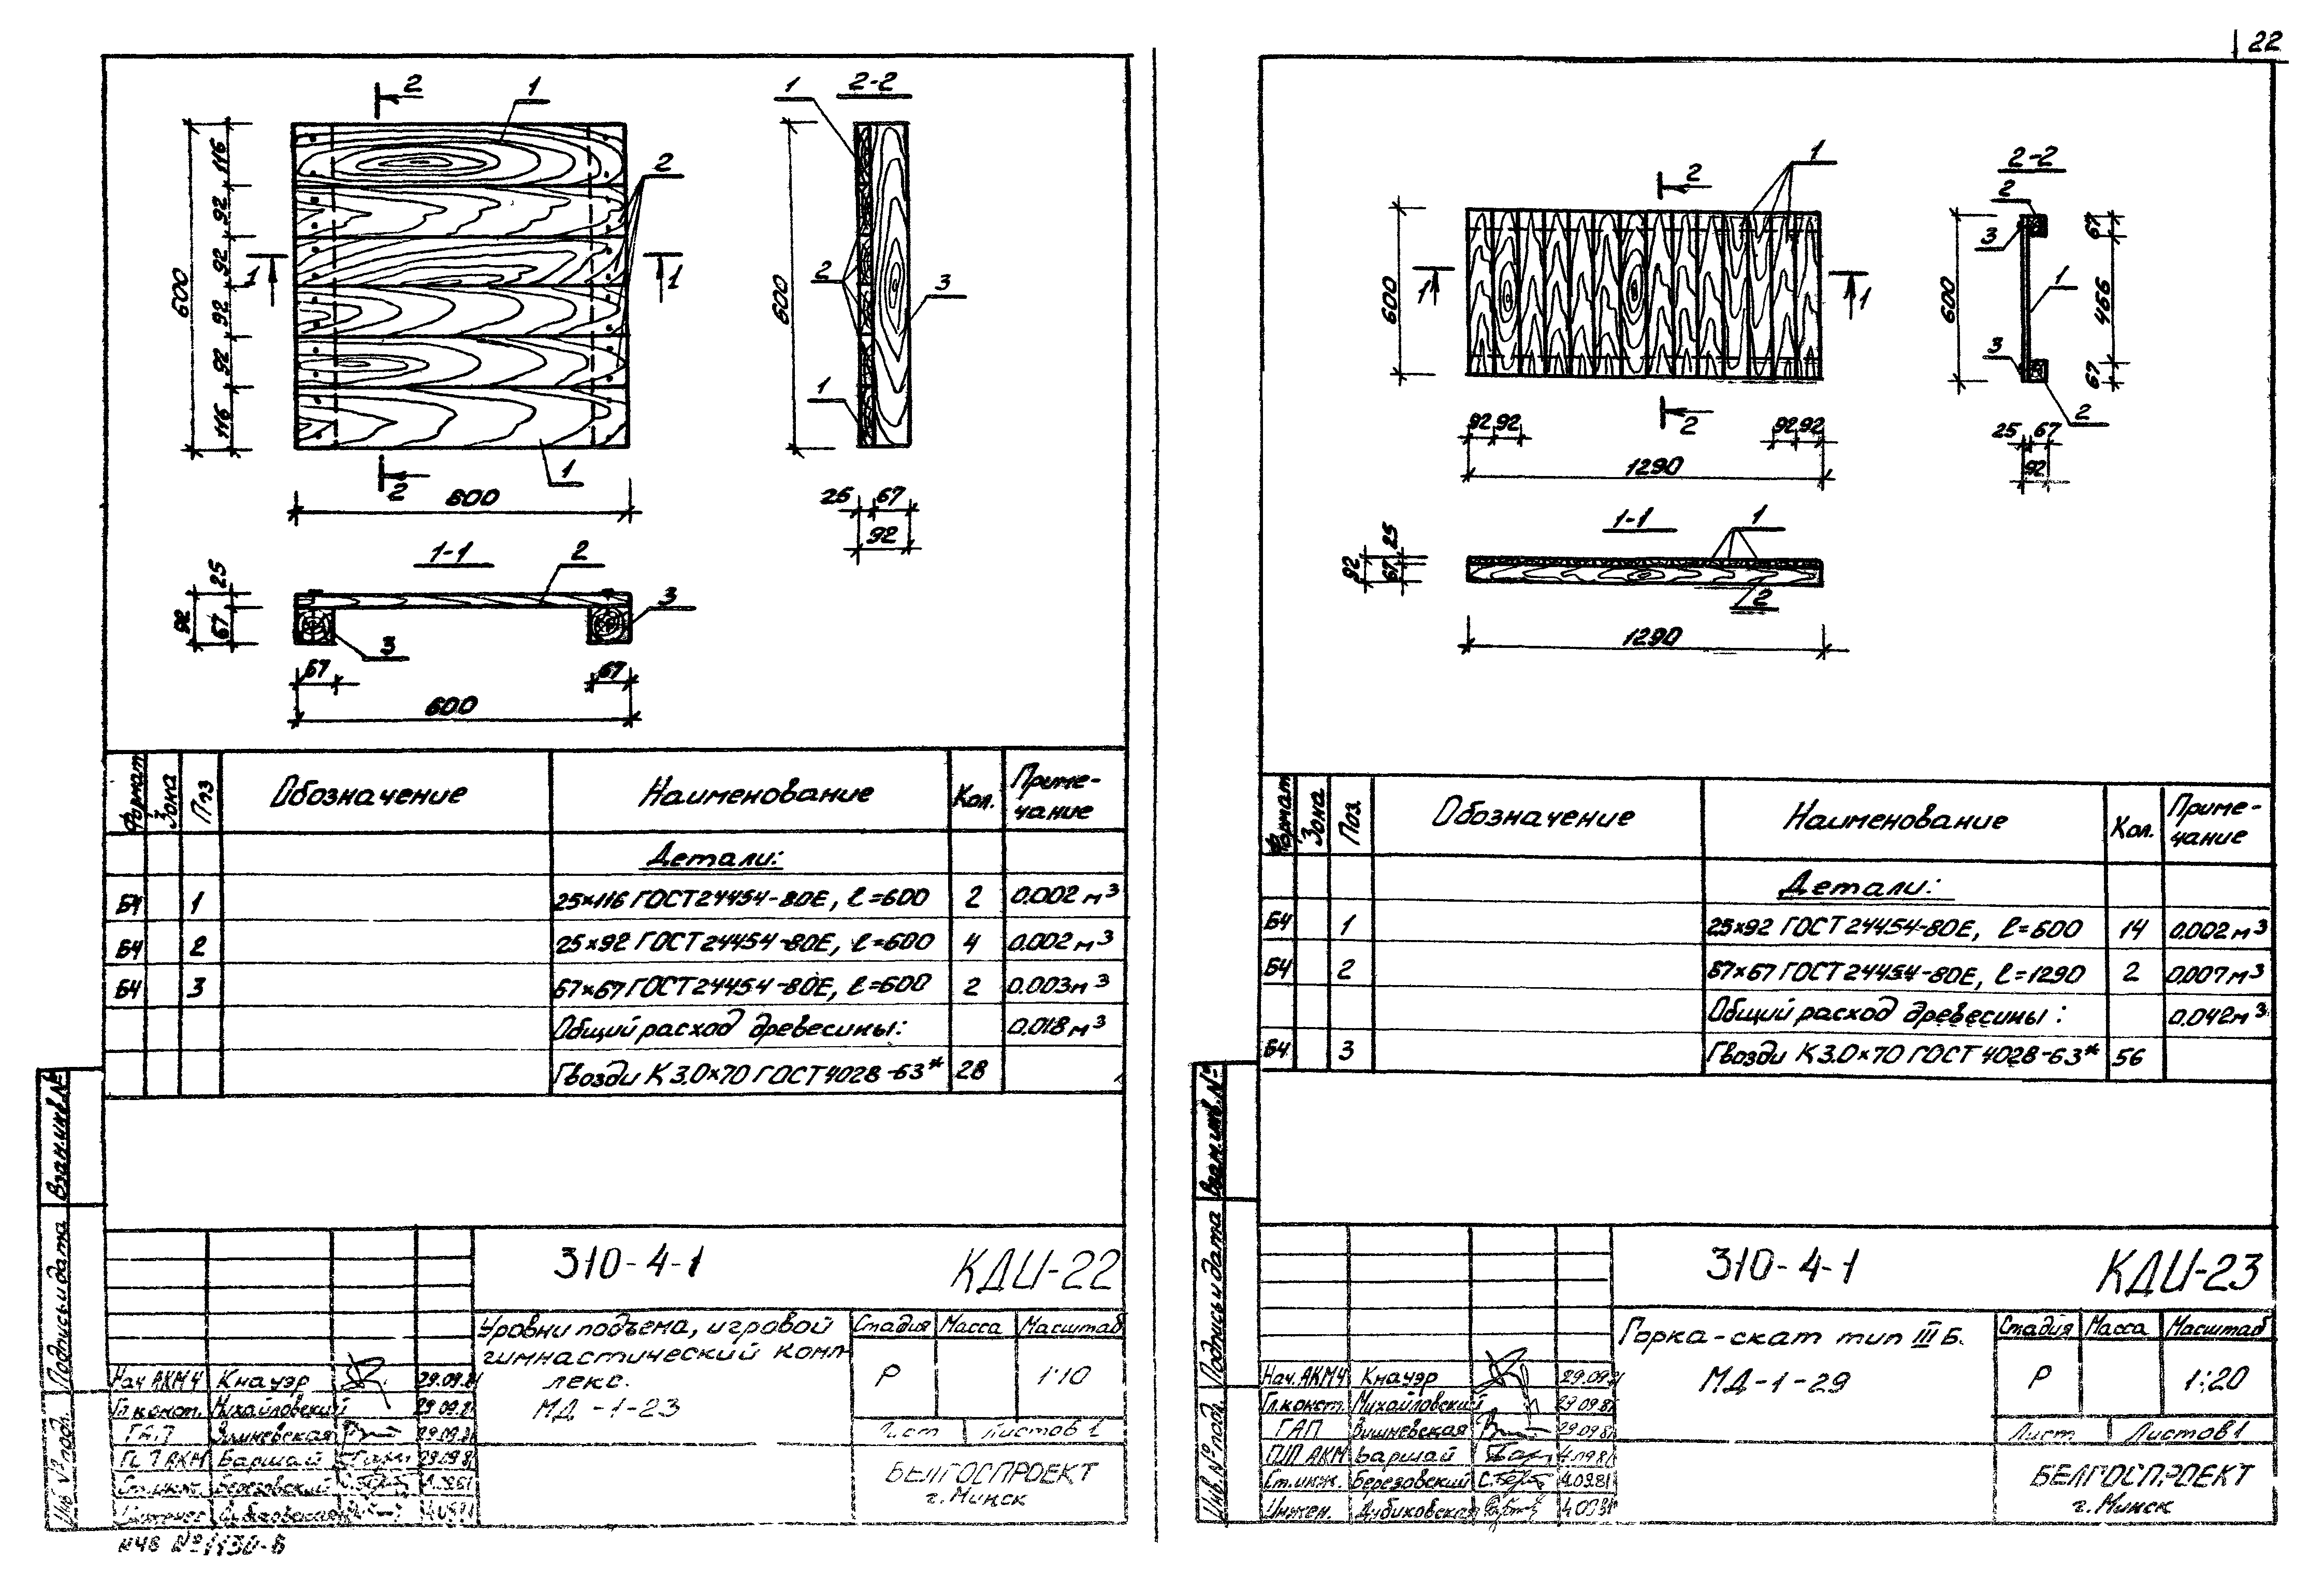 22
2
1
2
116
92
92
92
92
116
600
1
1
1
2
600
1
2-2
2
3
1
600
25
67
92
1-1
2
3
3
25
67
92
67
67
600
Формат
Зона
Поз
Обозначение
Наименование
Кол.
Приме-
чание
Детали:
Б4 1 25×116 ГОСТ 24454-80Е, ℓ=600 2 0.002 м³
Б4 2 25×92 ГОСТ 24454-80Е, ℓ=600 4 0.002 м³
Б4 3 67×67 ГОСТ 24454-80Е, ℓ=600 2 0.003 м³
Общий расход древесины: 0.018 м³
Гвозди К 3.0×70 ГОСТ 4028-63* 28
Взам.инв.№
Подпись и дата
Инв.№ подл.
310-4-1
КДИ-22
Уровни подъема, игровой
гимнастический комп-
лекс.
МД-1-23
Стадия Масса Масштаб
Р 1:10
Лист Листов 1
БЕЛГОСПРОЕКТ
г. Минск
Нач АКМ4 Кнауэр 29.09.81
Гл.конст. Михайловский 29.09.81
ГАП Вишневская 29.09.81
Варшай
Ст.инж. Березовский
Инжен. Дубиковская
2
1
600
1
1
2
92 92
92 92
1290
2-2
2
3
1
3
2
600
67
466
67
25 67
92
1-1
1
2
25
67
92
1290
Формат
Зона
Поз.
Обозначение
Наименование
Кол.
Приме-
чание
Детали:
Б4 1 25×92 ГОСТ 24454-80Е, ℓ=600 14 0.002 м³
Б4 2 67×67 ГОСТ 24454-80Е, ℓ=1290 2 0.007 м³
Общий расход древесины: 0.042 м³
Б4 3 Гвозди К 3.0×70 ГОСТ 4028-63* 56
Взам.инв.№
Подпись и дата
Инв.№ подл.
310-4-1
КДИ-23
Горка-скат тип III Б.
МД-1-29
Стадия Масса Масштаб
Р 1:20
Лист Листов 1
БЕЛГОСПРОЕКТ
г. Минск
Нач.АКМ4 Кнауэр 29.09.81
Гл.конст. Михайловский 29.09.81
ГАП Вишневская 29.09.81
Варшай 4.09.81
Ст.инж. Березовский 4.09.81
Инжен. Дубиковская 4.09.81